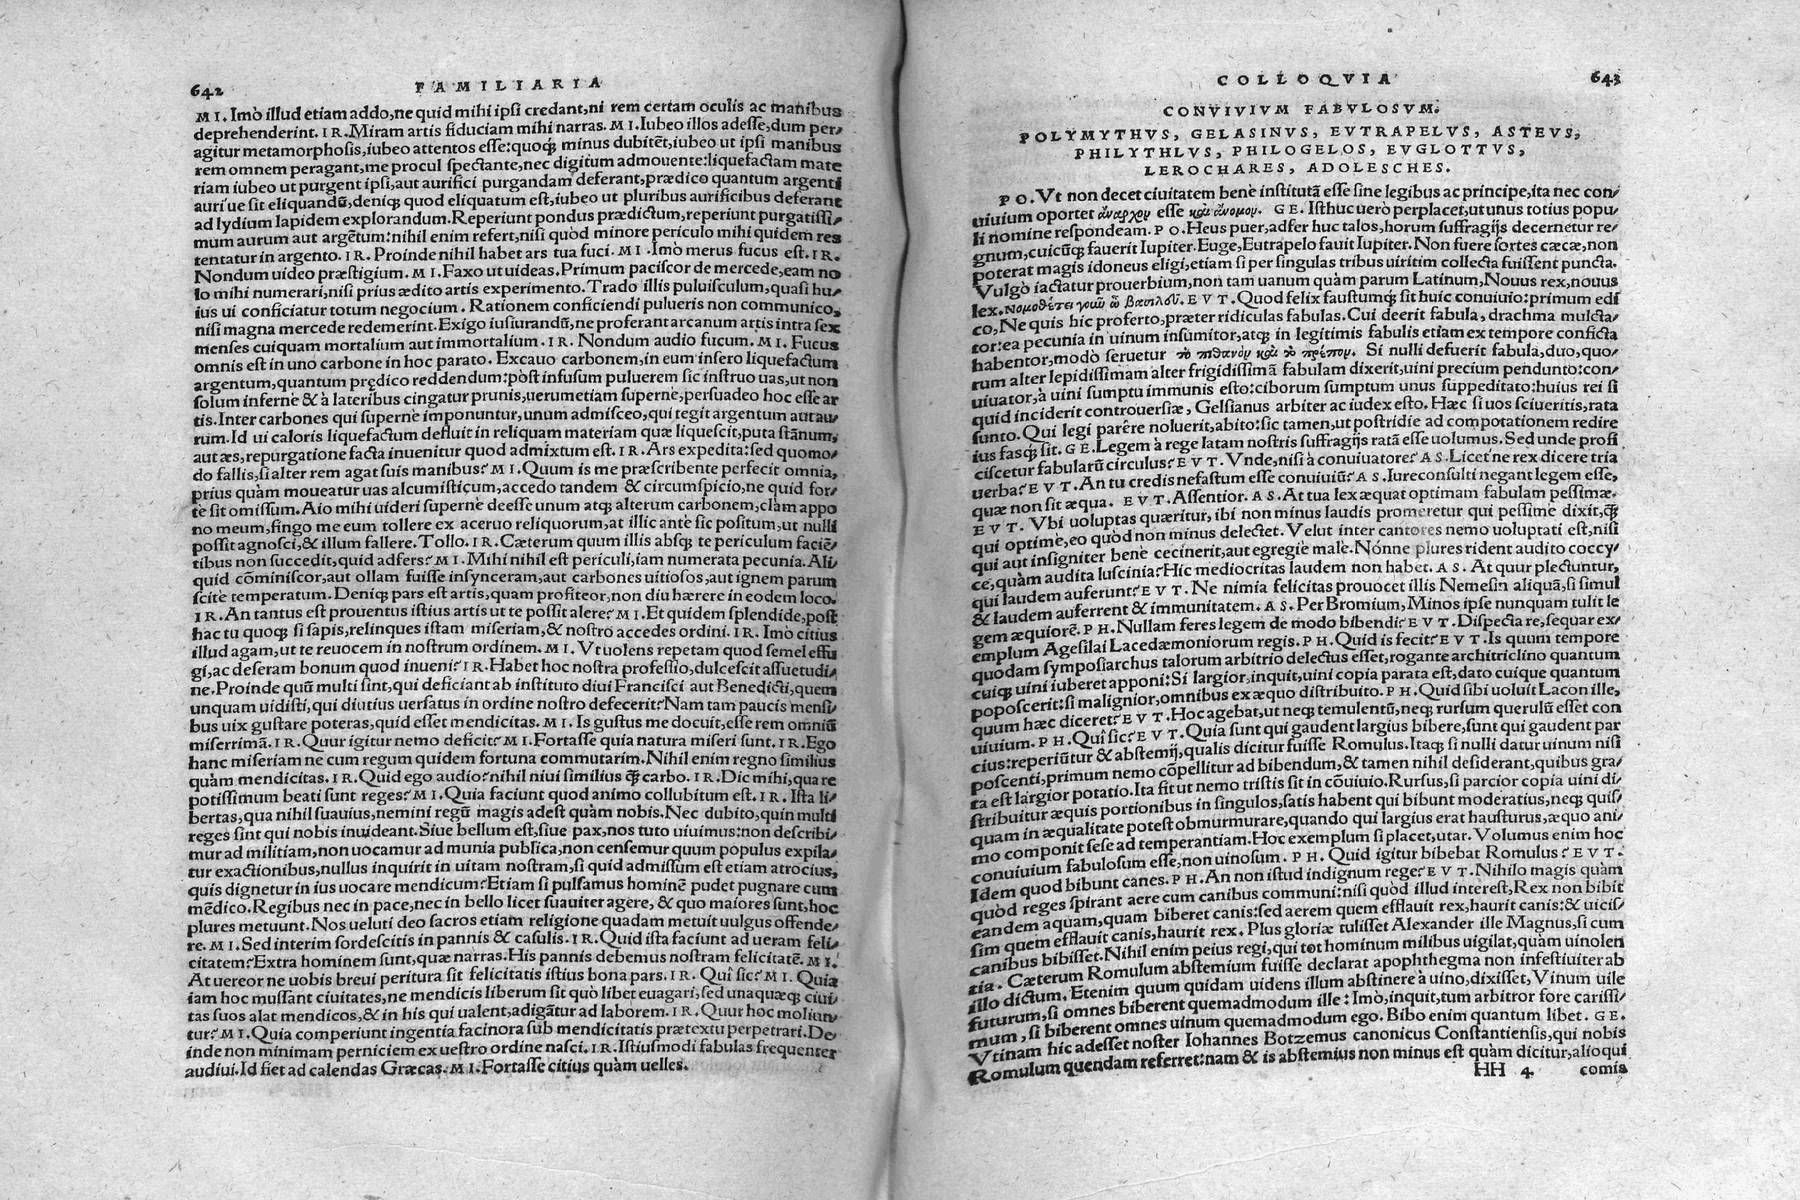 642 FAMILIARIA
MI. Imò illud etiam addo, ne quid mihi ipsi credant, ni rem certam oculis ac manibus
deprehenderint. IR. Miram artis fiduciam mihi narras. MI. Iubeo illos adesse, dum per/
agitur metamorphosis, iubeo attentos esse: quoq́; minus dubitẽt, iubeo ut ipsi manibus
rem omnem peragant, me procul spectante, nec digitum admouente: liquefactam mate
riam iubeo ut purgent ipsi, aut aurifici purgandam deferant, prædico quantum argenti
auri'ue sit eliquandũ, deniq; quod eliquatum est, iubeo ut pluribus aurificibus deferant
ad lydium lapidem explorandum. Reperiunt pondus prædictum, reperiunt purgatissi/
mum aurum aut argẽtum: nihil enim refert, nisi quòd minore periculo mihi quidem res
tentatur in argento. IR. Proinde nihil habet ars tua fuci. MI. Imò merus fucus est. IR.
Nondum uideo præstigium. MI. Faxo ut uideas. Primum paciscor de mercede, eam no
lo mihi numerari, nisi prius ædito artis experimento. Trado illis puluisculum, quasi hu/
ius ui conficiatur totum negocium. Rationem conficiendi pulueris non communico,
nisi magna mercede redemerint. Exigo iusiurandũ, ne proferant arcanum artis intra sex
menses cuiquam mortalium aut immortalium. IR. Nondum audio fucum. MI. Fucus
omnis est in uno carbone in hoc parato. Excauo carbonem, in eum insero liquefactum
argentum, quantum prędico reddendum: pòst infusum puluerem sic instruo uas, ut non
solum infernè & à lateribus cingatur prunis, uerumetiam supernè, persuadeo hoc esse ar
tis. Inter carbones qui supernè imponuntur, unum admisceo, qui tegit argentum aut au/
rum. Id ui caloris liquefactum defluit in reliquam materiam quæ liquescit, puta stãnum,
aut æs, repurgatione facta inuenitur quod admixtum est. IR. Ars expedita: sed quomo/
do fallis, si alter rem agat suis manibus? MI. Quum is me præscribente perfecit omnia,
prius quàm moueatur uas alcumisticum, accedo tandem & circumspicio, ne quid for/
te sit omissum. Aio mihi uideri supernè deesse unum atq; alterum carbonem, clàm appo
no meum, fingo me eum tollere ex aceruo reliquorum, at illic antè sic positum, ut nulli
possit agnosci, & illum fallere. Tollo. IR. Cæterum quum illis absq; te periculum faciẽ/
tibus non succedit, quid adfers? MI. Mihi nihil est periculi, iam numerata pecunia. Ali/
quid cõminiscor, aut ollam fuisse insynceram, aut carbones uitiosos, aut ignem parum
scitè temperatum. Deniq; pars est artis, quam profiteor, non diu hærere in eodem loco.
IR. An tantus est prouentus istius artis ut te possit alere? MI. Et quidem splendide, post
hac tu quoq; si sapis, relinques istam miseriam, & nostro accedes ordini. IR. Imò citius
illud agam, ut te reuocem in nostrum ordinem. MI. Vt uolens repetam quod semel effu
gi, ac deseram bonum quod inueni? IR. Habet hoc nostra professio, dulcescit assuetudi/
ne. Proinde quũ multi sint, qui deficiant ab instituto diui Francisci aut Benedicti, quem
unquam uidisti, qui diutius uersatus in ordine nostro defecerit? Nam tam paucis mensi/
bus uix gustare poteras, quid esset mendicitas. MI. Is gustus me docuit, esse rem omniũ
miserrimã. IR. Quur igitur nemo deficit? MI. Fortasse quia natura miseri sunt. IR. Ego
hanc miseriam ne cum regum quidem fortuna commutarim. Nihil enim regno similius
quàm mendicitas. IR. Quid ego audio? nihil niui similius q̃ carbo. IR. Dic mihi, qua re
potissimum beati sunt reges? MI. Quia faciunt quod animo collubitum est. IR. Ista li/
bertas, qua nihil suauius, nemini regũ magis adest quàm nobis. Nec dubito, quin multi
reges sint qui nobis inuideant. Siue bellum est, siue pax, nos tuto uiuimus: non describi/
mur ad militiam, non uocamur ad munia publica, non censemur quum populus expila/
tur exactionibus, nullus inquirit in uitam nostram, si quid admissum est etiam atrocius,
quis dignetur in ius uocare mendicum? Etiam si pulsamus hominẽ pudet pugnare cum
mẽdico. Regibus nec in pace, nec in bello licet suauiter agere, & quo maiores sunt, hoc
plures metuunt. Nos ueluti deo sacros etiam religione quadam metuit uulgus offende/
re. MI. Sed interim sordescitis in pannis & casulis. IR. Quid ista faciunt ad ueram feli/
citatem? Extra hominem sunt, quæ narras. His pannis debemus nostram felicitatẽ. MI.
At uereor ne uobis breui peritura sit felicitatis istius bona pars. IR. Quî sic? MI. Quia
iam hoc mussant ciuitates, ne mendicis liberum sit quò libet euagari, sed unaquæq; ciui/
tas suos alat mendicos, & in his qui ualent, adigãtur ad laborem. IR. Quur hoc moliun/
tur? MI. Quia comperiunt ingentia facinora sub mendicitatis prætextu perpetrari. De/
inde non minimam perniciem ex uestro ordine nasci. IR. Istiusmodi fabulas frequenter
audiui. Id fiet ad calendas Græcas. MI. Fortasse citius quàm uelles.
COLLOQVIA 643
CONVIVIVM FABVLOSVM.
POLYMYTHVS, GELASINVS, EVTRAPELVS, ASTEVS,
PHILYTHLVS, PHILOGELOS, EVGLOTTVS,
LEROCHARES, ADOLESCHES.
PO. Vt non decet ciuitatem benè institutã esse sine legibus ac principe, ita nec con/
uiuium oportet ἄναρχον esse καὶ ἄνομον. GE. Isthuc uerò perplacet, ut unus totius popu/
li nomine respondeam. PO. Heus puer, adfer huc talos, horum suffragijs decernetur re/
gnum, cuicũq; fauerit Iupiter. Euge, Eutrapelo fauit Iupiter. Non fuere sortes cæcæ, non
poterat magis idoneus eligi, etiam si per singulas tribus uiritim collecta fuissent puncta.
Vulgò iactatur prouerbium, non tam uanum quàm parum Latinum, Nouus rex, nouus
lex. νομοθέτει γοῦν ὦ βασιλεῦ. EVT. Quod felix faustumq́; sit huic conuiuio: primum edi
co, Ne quis hic proferto, præter ridiculas fabulas. Cui deerit fabula, drachma mulcta/
tor: ea pecunia in uinum insumitor, atq; in legitimis fabulis etiam ex tempore conficta
habentor, modò seruetur τὸ πιθανὸν καὶ τὸ πρέπον. Si nulli defuerit fabula, duo, quo/
rum alter lepidissimam alter frigidissimã fabulam dixerit, uini precium pendunto: con/
uiuator, à uini sumptu immunis esto: ciborum sumptum unus suppeditato: huius rei si
quid inciderit controuersiæ, Gelsianus arbiter ac iudex esto. Hæc si uos sciueritis, rata
sunto. Qui legi parêre noluerit, abito: sic tamen, ut postridie ad compotationem redire
ius fasq́; sit. GE. Legem à rege latam nostris suffragijs ratã esse uolumus. Sed unde profi
ciscetur fabularũ circulus? EVT. Vnde, nisi à conuiuatore? AS. Licet'ne rex dicere tria
uerba? EVT. An tu credis nefastum esse conuiuiũ? AS. Iureconsulti negant legem esse,
quæ non sit æqua. EVT. Assentior. AS. At tua lex æquat optimam fabulam pessimæ.
EVT. Vbi uoluptas quæritur, ibi non minus laudis promeretur qui pessimè dixit, q̃
qui optimè, eo quòd non minus delectet. Velut inter cantores nemo uoluptati est, nisi
qui aut insigniter benè cecinerit, aut egregiè malè. Nónne plures rident audito coccy/
ce, quàm audita luscinia? Hic mediocritas laudem non habet. AS. At quur plectuntur,
qui laudem auferunt? EVT. Ne nimia felicitas prouocet illis Nemesin aliquã, si simul
& laudem auferrent & immunitatem. AS. Per Bromium, Minos ipse nunquam tulit le
gem æquiorẽ. PH. Nullam feres legem de modo bibendi? EVT. Dispecta re, sequar ex/
emplum Agesilai Lacedæmoniorum regis. PH. Quid is fecit? EVT. Is quum tempore
quodam symposiarchus talorum arbitrio delectus esset, rogante architriclino quantum
cuiq; uini iuberet apponi: Si largior, inquit, uini copia parata est, dato cuique quantum
poposcerit: si malignior, omnibus ex æquo distribuito. PH. Quid sibi uoluit Lacon ille,
quum hæc diceret? EVT. Hoc agebat, ut neq; temulentũ, neq; rursum querulũ esset con
uiuium. PH. Quî sic? EVT. Quia sunt qui gaudent largius bibere, sunt qui gaudent par
cius: reperiũtur & abstemij, qualis dicitur fuisse Romulus. Itaq; si nulli datur uinum nisi
poscenti, primum nemo cõpellitur ad bibendum, & tamen nihil desiderant, quibus gra/
ta est largior potatio. Ita fit ut nemo tristis sit in cõuiuio. Rursus, si parcior copia uini di/
stribuitur æquis portionibus in singulos, satis habent qui bibunt moderatius, neq; quis/
quam in æqualitate potest obmurmurare, quando qui largius erat hausturus, æquo ani/
mo componit sese ad temperantiam. Hoc exemplum si placet, utar. Volumus enim hoc
conuiuium fabulosum esse, non uinosum. PH. Quid igitur bibebat Romulus? EVT.
Idem quod bibunt canes. PH. An non istud indignum rege? EVT. Nihilo magis quàm
quòd reges spirant aere cum canibus communi: nisi quòd illud interest, Rex non bibit
eandem aquam, quam biberet canis: sed aerem quem efflauit rex, haurit canis: & uicis/
sim quem efflauit canis, haurit rex. Plus gloriæ tulisset Alexander ille Magnus, si cum
canibus bibisset. Nihil enim peius regi, qui tot hominum milibus uigilat, quàm uinolen
tia. Cæterum Romulum abstemium fuisse declarat apophthegma non infestiuiter ab
illo dictum. Etenim quum quidam uidens illum abstinere à uino, dixisset, Vinum uile
futurum, si omnes biberent quemadmodum ille: Imò, inquit, tum arbitror fore carissi/
mum, si biberent omnes uinum quemadmodum ego. Bibo enim quantum libet. GE.
Vtinam hic adesset noster Iohannes Botzemus canonicus Constantiensis, qui nobis
Romulum quendam referret: nam & is abstemius non minus est quàm dicitur, alioqui
HH 4 comis